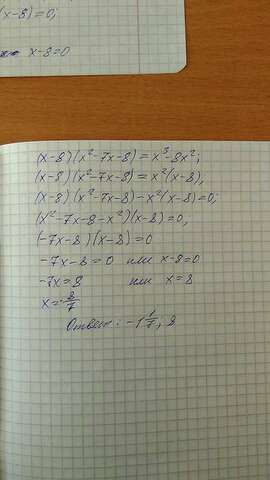 (x-8)=0;
x-8=0
(x-8)(x²-7x-8)=x³-8x²;
(x-8)(x²-7x-8)=x²(x-8);
(x-8)(x²-7x-8)-x²(x-8)=0;
(x²-7x-8-x²)(x-8)=0,
(-7x-8)(x-8)=0
-7x-8=0 или x-8=0
-7x=8 или x=8
x=-8/7
Ответ: -1 1/7; 8